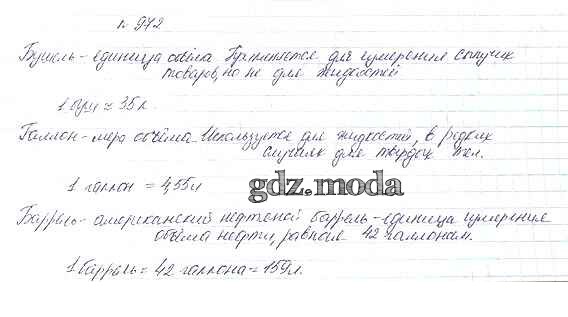 № 972
Бушель - единица объёма Применяется для измерения сыпучих
товаров, но не для жидкостей
1 буш ≈ 35 л.
Галлон - мера объёма. Используется для жидкостей, в редких
случаях для твёрдых тел.
1 галлон = 4,55 л
gdz.moda
Баррель - американский нефтяной баррель - единица измерения
объёма нефти, равная 42 галлонам.
1 баррель = 42 галлона = 159 л.